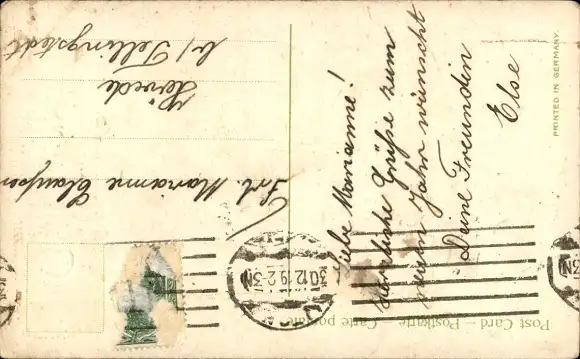 Post Card – Postkarte – Carte postale
PRINTED IN GERMANY.
Liebe Marianne!
Herzliche Grüße zum
neuen Jahr wünscht
Deine Freundin
Else
Frl. Marianne Claussen
Hövede
b/ Tellingstedt
30.12.19.2-3N